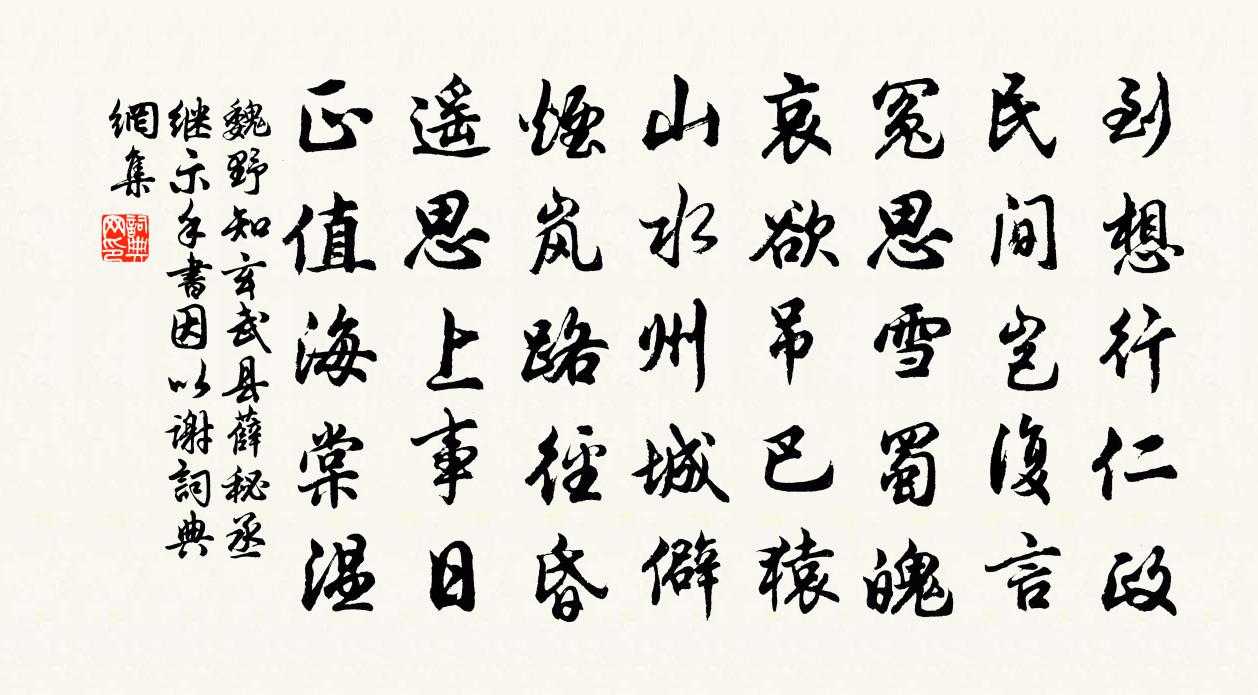 到想行仁政
民间岂復言
冤思雪蜀魄
哀欲吊巴猿
山水州城僻
煙岚路径昏
遥思上事日
正值海棠温
魏野知玄武县薛秘丞
继示手書因以谢詞典
網集
詞典網印